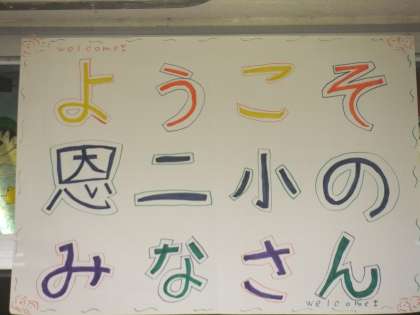 welcome!
ようこそ
恩二小の
みなさん
welcome!